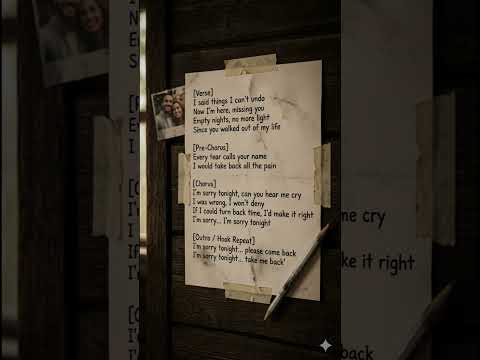 [Verse]
I said things I can't undo
Now I'm here, missing you
Empty nights, no more light
Since you walked out of my life
[Pre-Chorus]
Every tear calls your name
I would take back all the pain
[Chorus]
I'm sorry tonight, can you hear me cry
I was wrong, I won't deny
If I could turn back time, I'd make it right
I'm sorry... I'm sorry tonight
[Outro / Hook Repeat]
I'm sorry tonight... please come back
I'm sorry tonight... take me back'